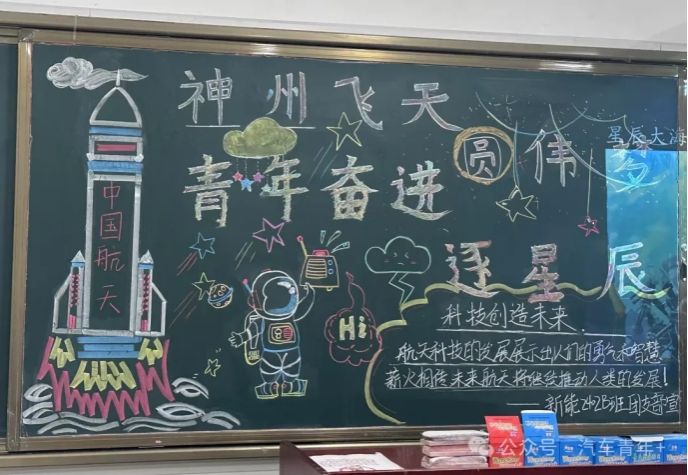 神州飞天圆伟梦
星辰大海
青年奋进逐星辰
中国航天
Hi
科技创造未来
航天科技的发展展示出人们的勇气和智慧
薪火相传未来航天将继续推动人类的发展!
公众号